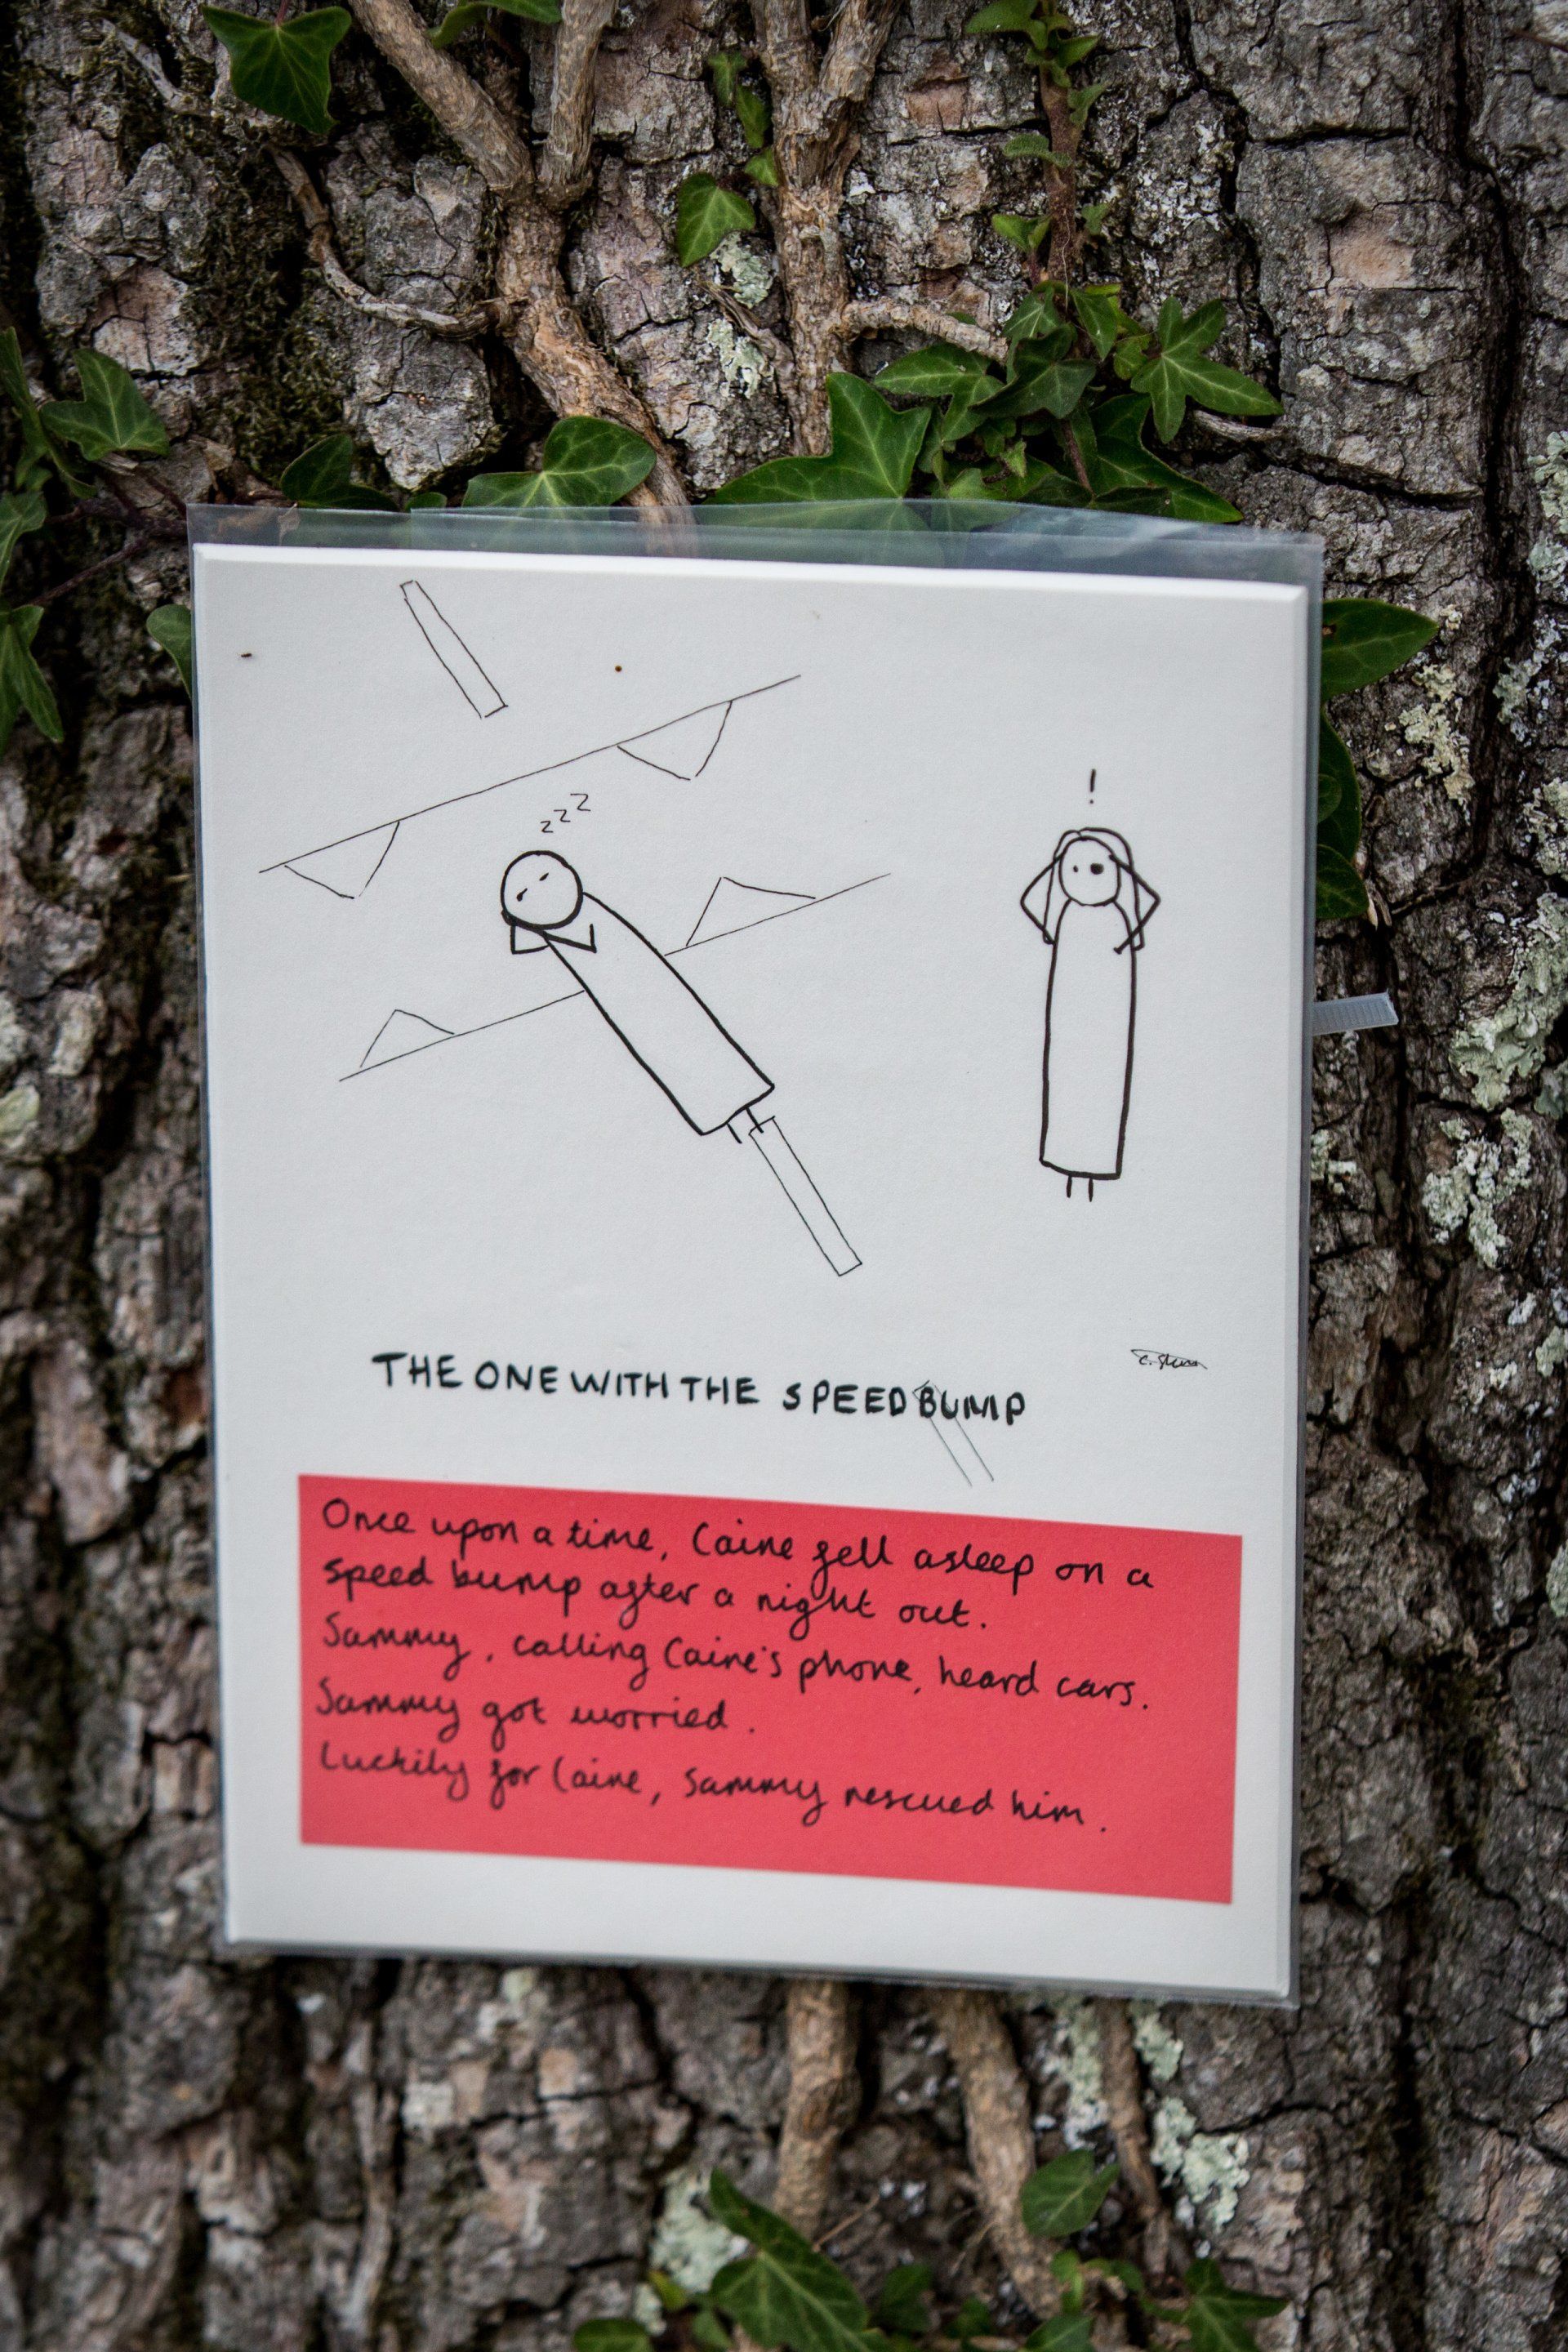 zzz
!
THE ONE WITH THE SPEED BUMP
Once upon a time, Caine fell asleep on a
speed bump after a night out.
Sammy, calling Caine's phone, heard cars.
Sammy got worried.
Luckily for Caine, Sammy rescued him.